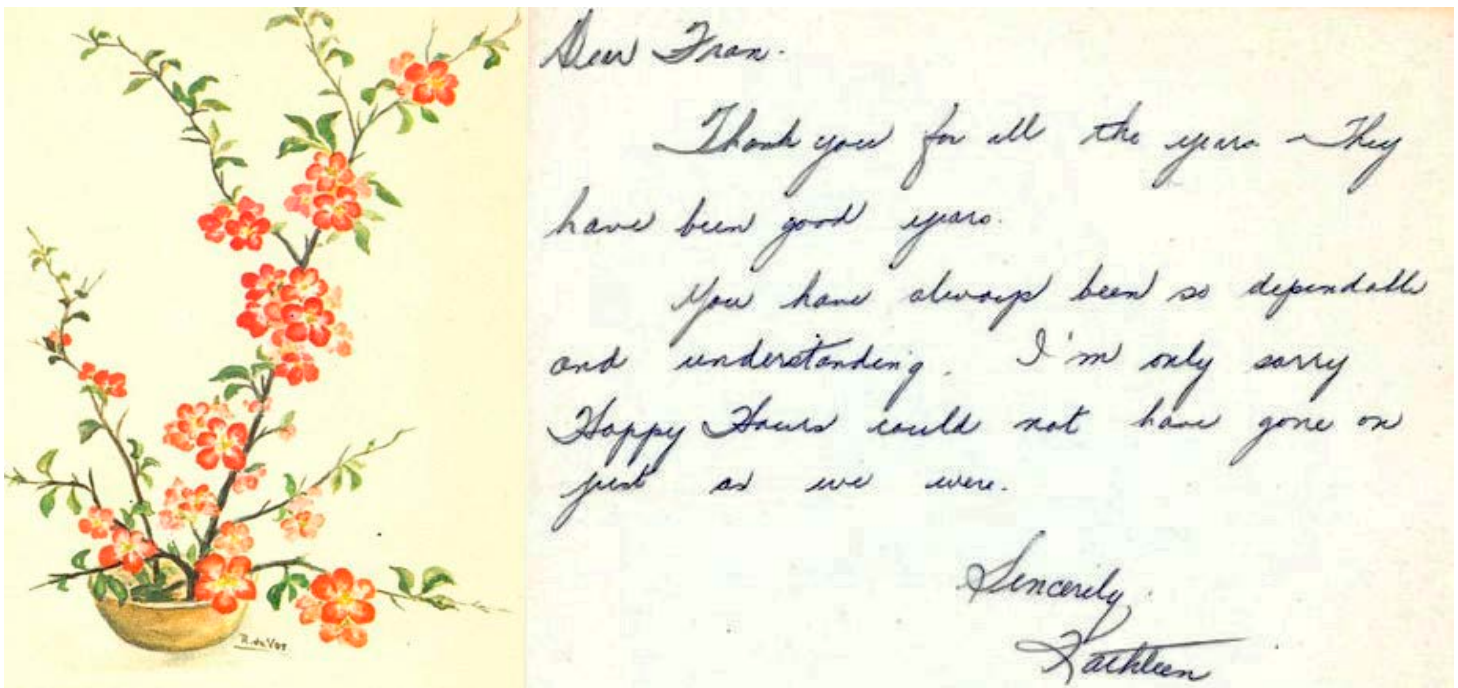 Dear Fran.
Thank you for all the years - They
have been good years.
You have always been so dependable
and understanding. I'm only sorry
Happy Hours could not have gone on
just as we were.
Sincerely,
Kathleen
R. de Vos